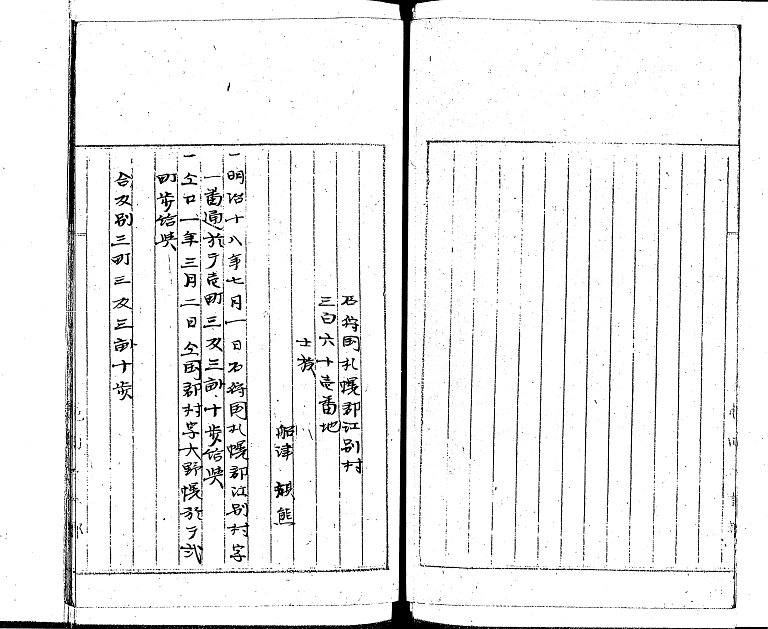 石狩国札幌郡江別村
三百六十壱番地
士族
船津 類熊
一明治十八年七月一日石狩国札幌郡江別村字
一番通於テ壱町三反三畝十歩給與
一仝廿一年三月二日仝国郡村字大野幌於テ弐
町歩給與
合反別三町三反三畝十歩